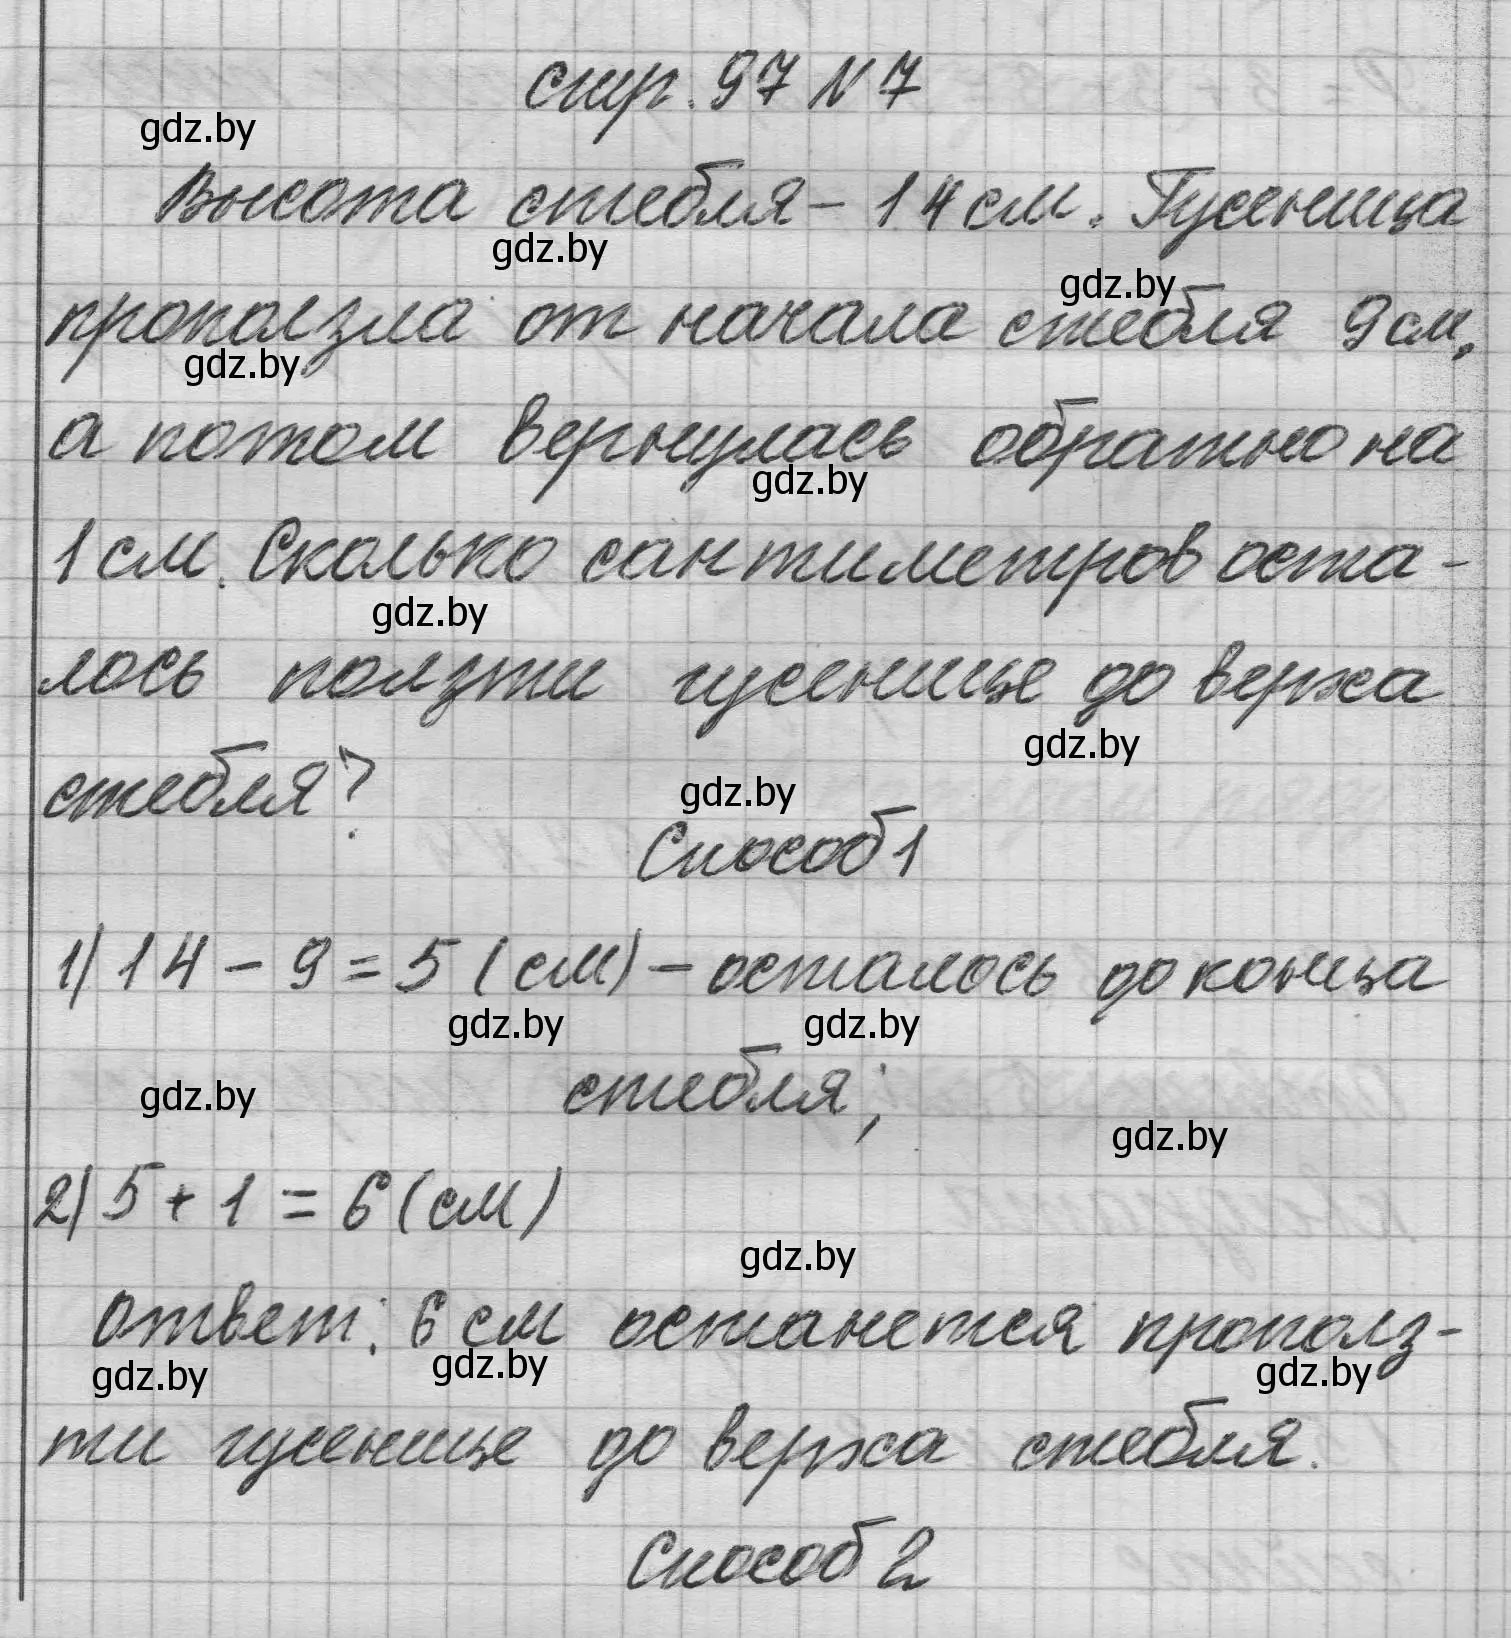 стр. 97 N 7
gdz.by
Высота стебля - 14 см. Гусеница
gdz.by
gdz.by
проползла от начала стебля 9 см,
gdz.by
а потом вернулась обратно на
gdz.by
1 см. Сколько сантиметров оста-
gdz.by
лось ползти гусенице до верха
gdz.by
стебля?
gdz.by
Способ 1
1) 14 - 9 = 5 (см) - осталось до конца
gdz.by gdz.by
стебля;
gdz.by
gdz.by
2) 5 + 1 = 6 (см)
gdz.by
Ответ: 6 см останется прополз-
gdz.by gdz.by gdz.by
ти гусенице до верха стебля.
Способ 2